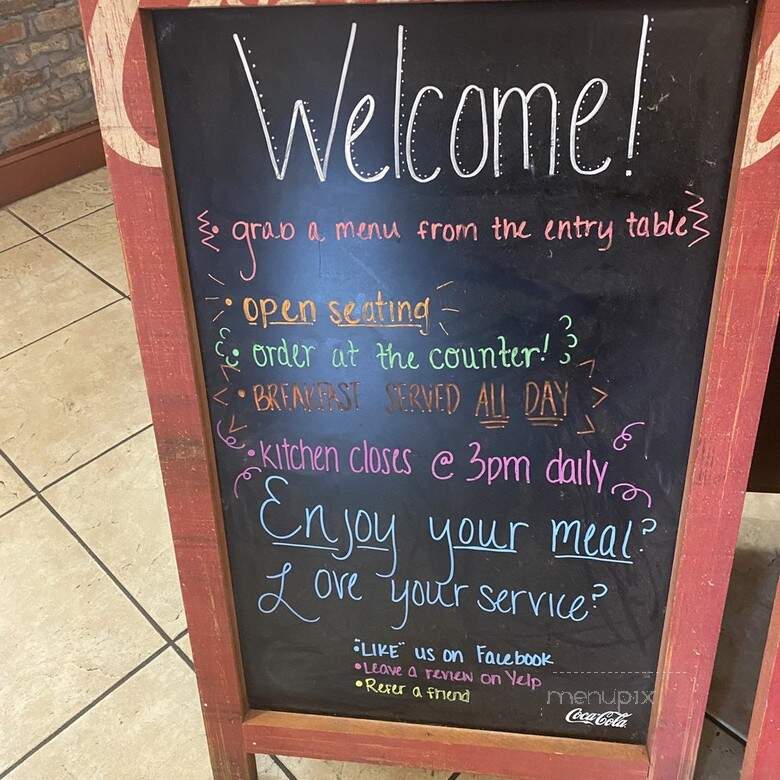 Welcome!
• grab a menu from the entry table
• open seating
• order at the counter!
• BREAKFAST SERVED ALL DAY
• kitchen closes @ 3pm daily
Enjoy your meal?
Love your service?
• "LIKE" us on Facebook
• Leave a review on Yelp
• Refer a friend
menupix
Coca-Cola